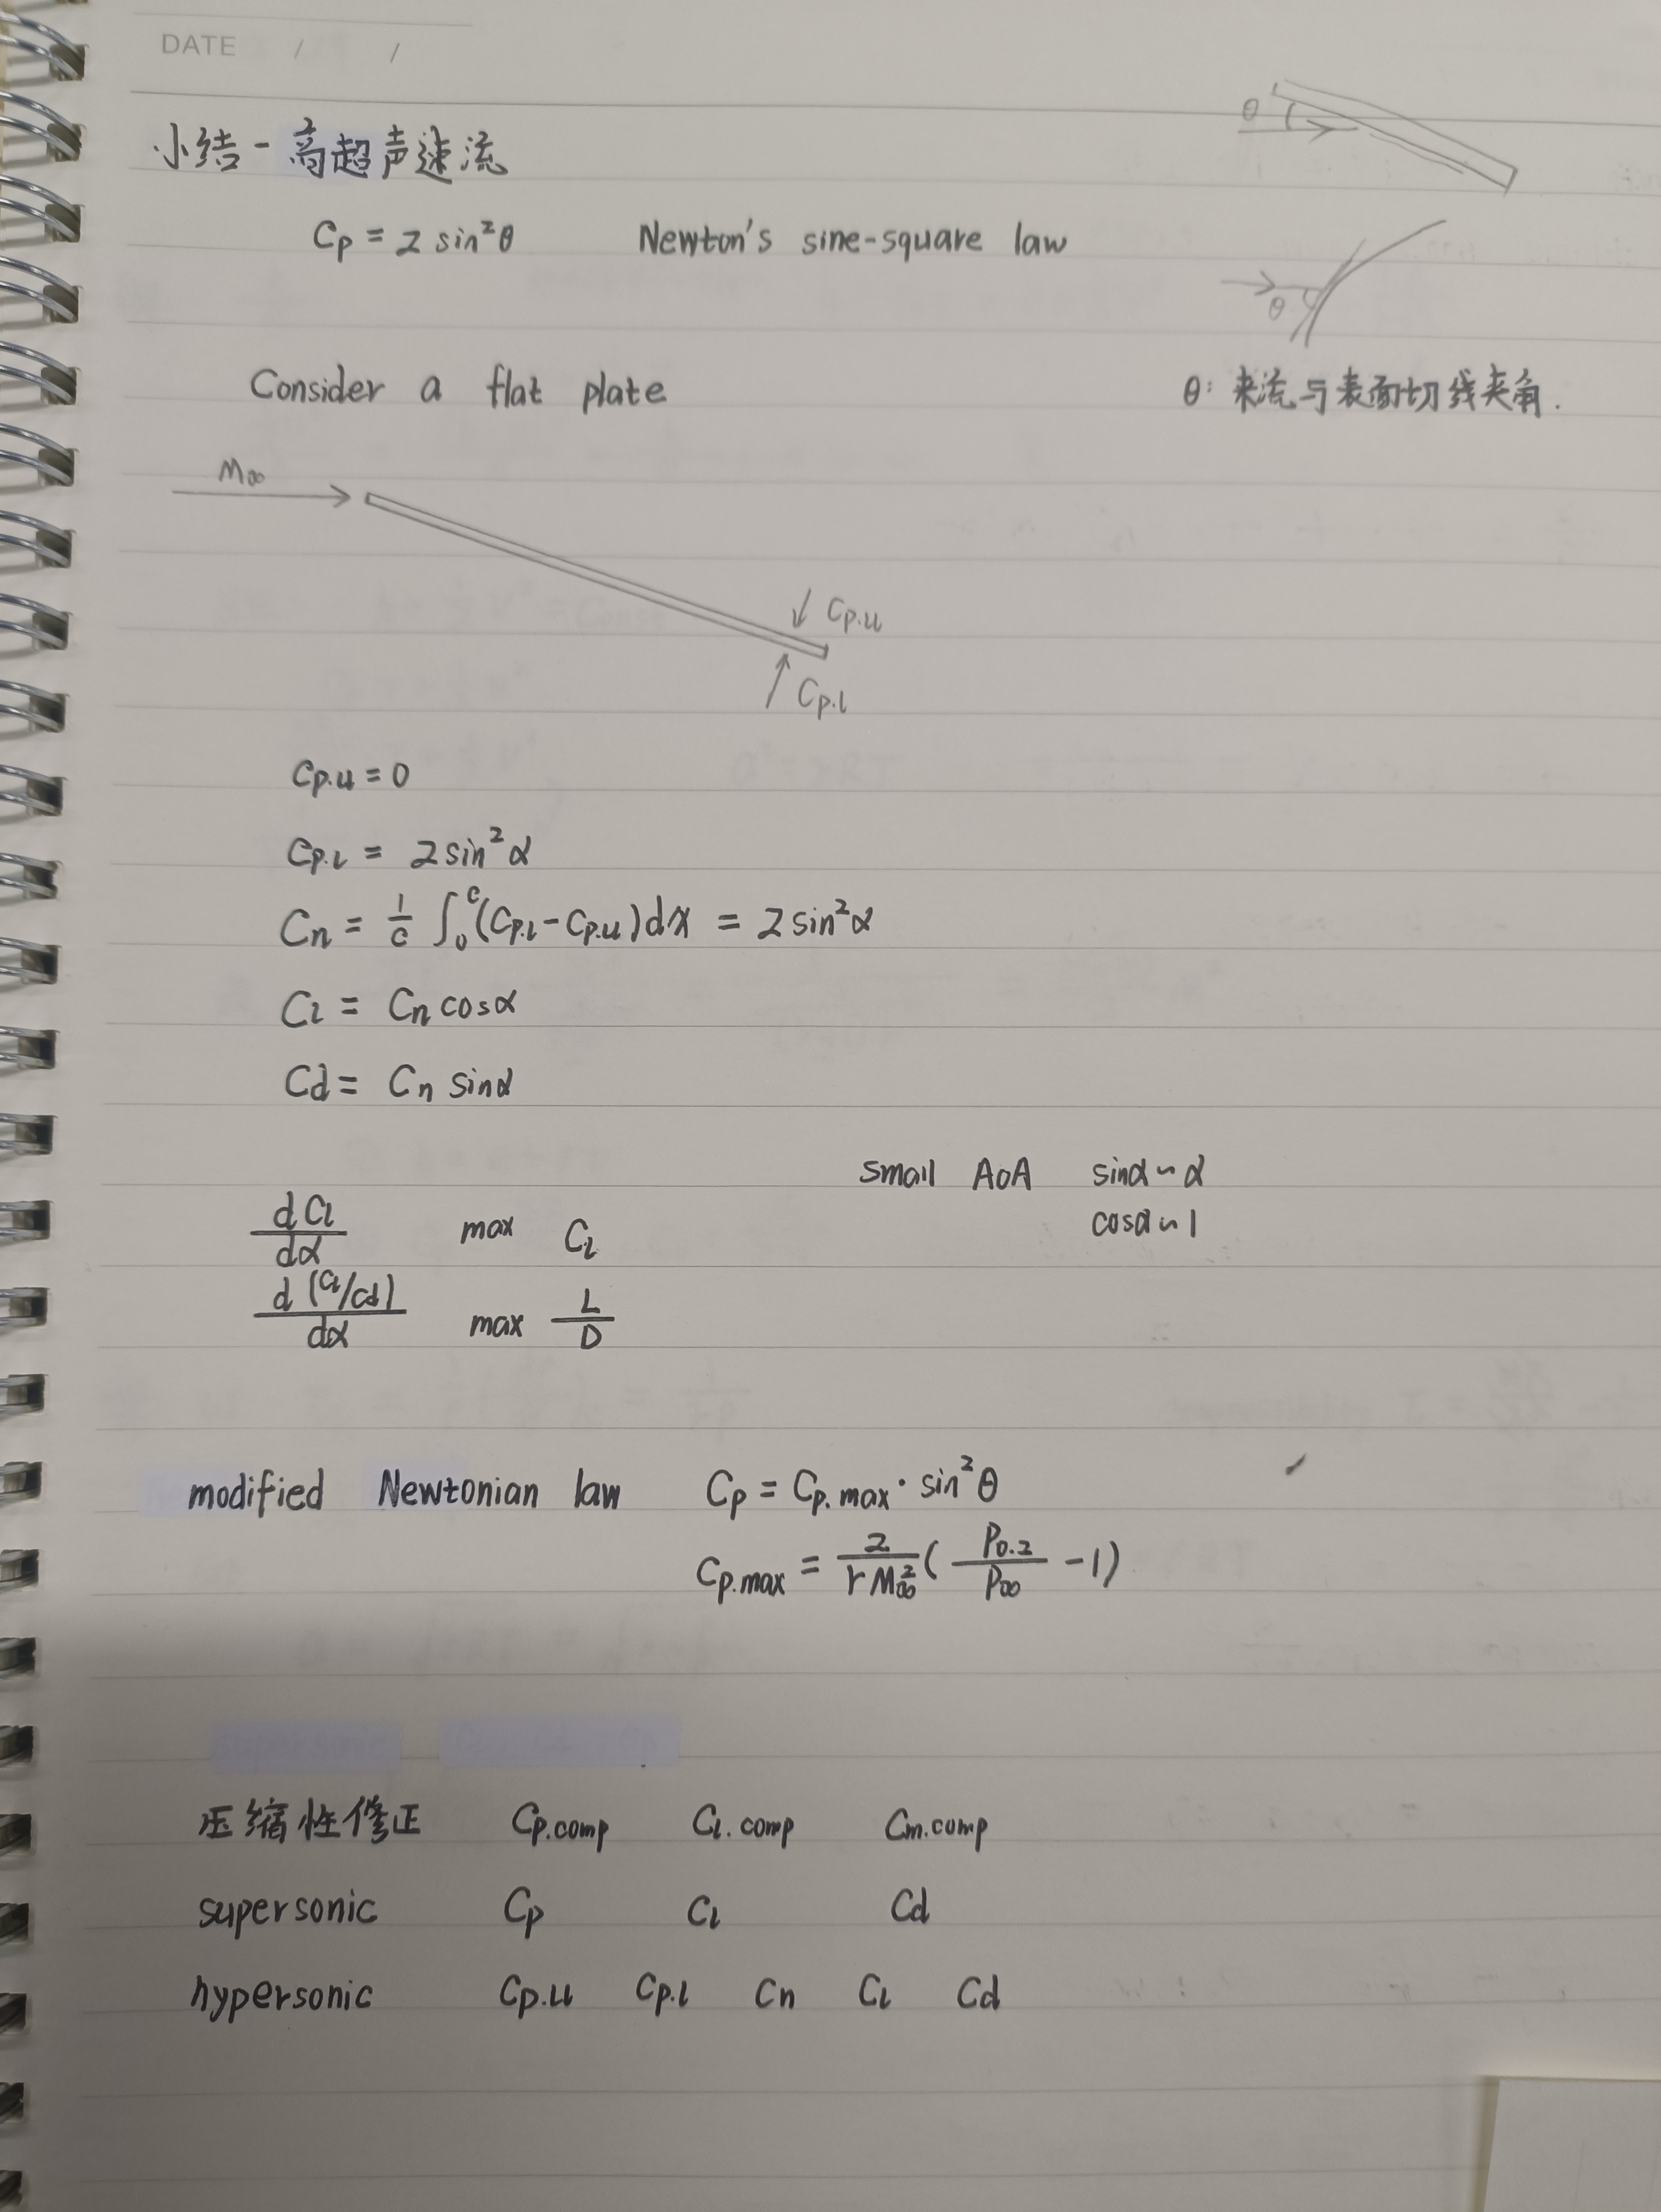 DATE / /
小结 - 高超声速流
θ
Cp = 2 sin²θ Newton's sine-square law
θ
Consider a flat plate
θ: 来流与表面切线夹角.
M∞
Cp.u
Cp.l
Cp.u = 0
Cp.l = 2sin²α
Cn = 1/c ∫₀ᶜ(Cp.l - Cp.u)dx = 2sin²α
Cl = Cn cosα
Cd = Cn sinα
small AoA sinα ~ α
cosα ~ 1
dCl/dα max Cl
d(Cl/Cd)/dα max L/D
modified Newtonian law Cp = Cp.max · sin²θ
Cp.max = 2/(γM∞²) (P0.2/P∞ - 1)
压缩性修正 Cp.comp Cl.comp Cm.comp
supersonic Cp Cl Cd
hypersonic Cp.u Cp.l Cn Cl Cd